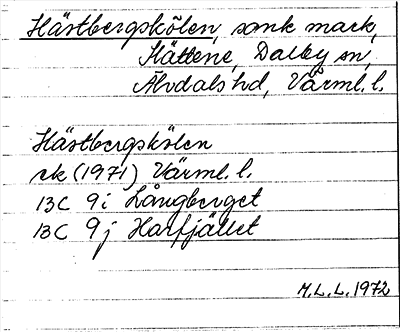 Hästbergskölen, sank mark,
Slättene, Dalby sn,
Älvdals hd, Värml. l.
Hästbergskölen
ek (1971) Värml. l.
13C 9i Långberget
13C 9j Harfjället
M.L.L. 1972